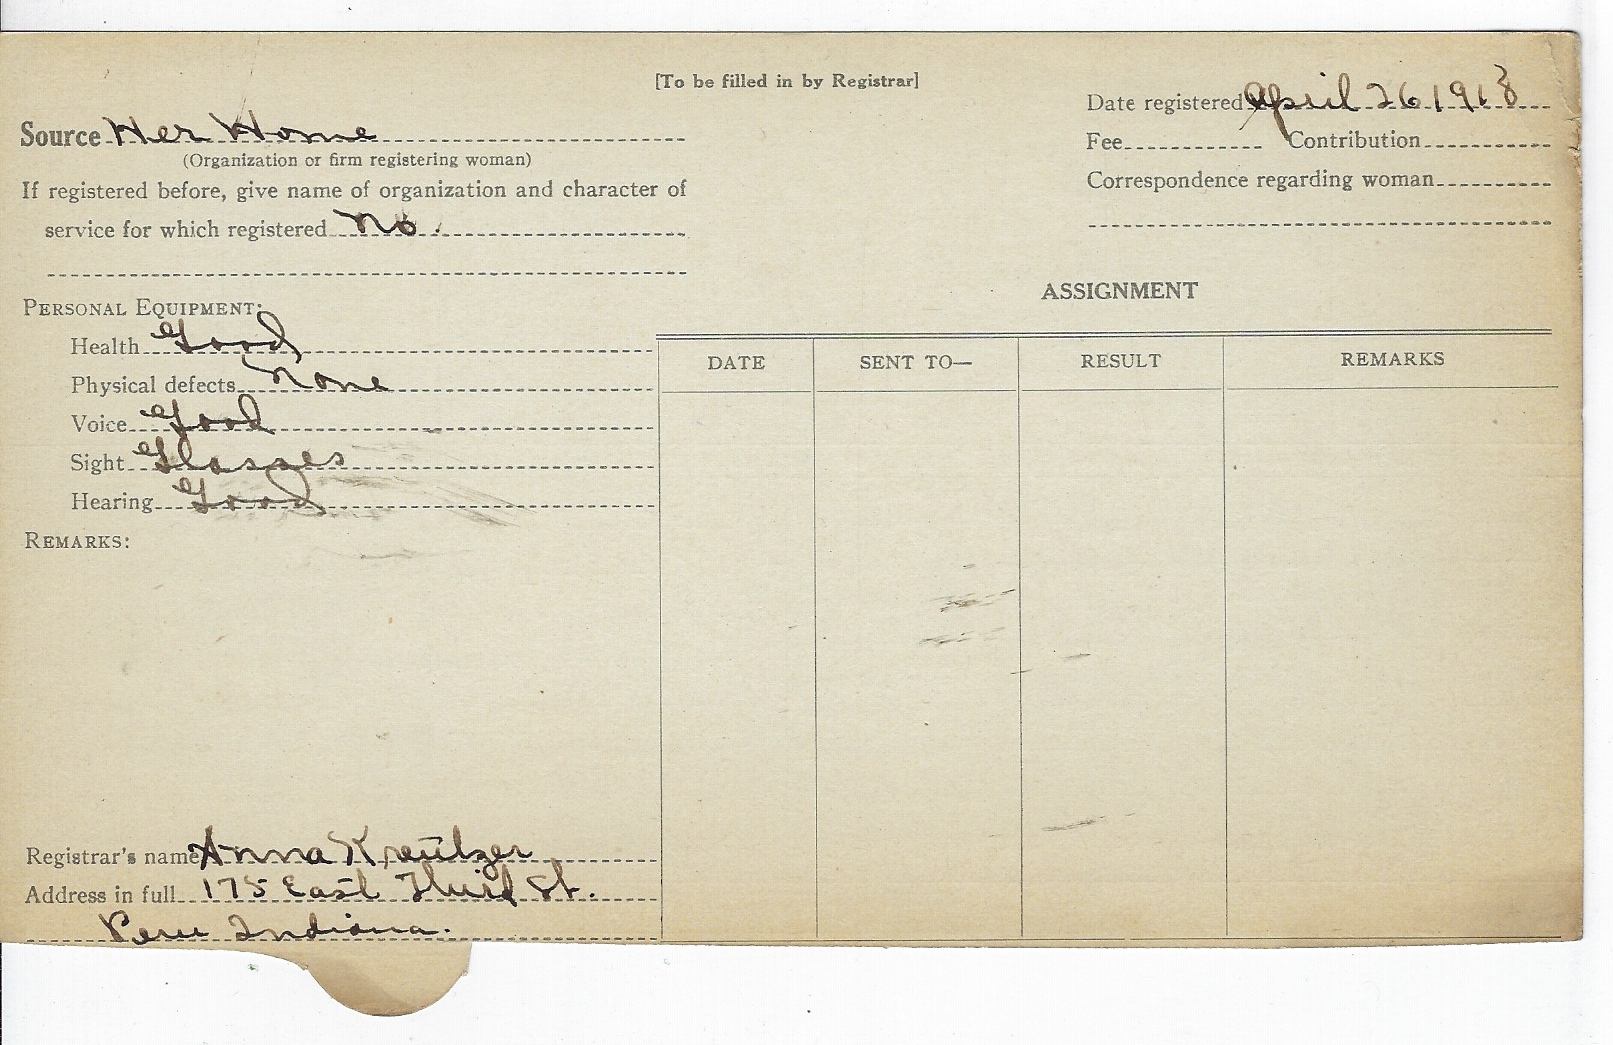 [To be filled in by Registrar]
Date registered April 26 1918
Source Her Home
Fee Contribution
(Organization or firm registering woman)
Correspondence regarding woman
If registered before, give name of organization and character of
service for which registered No.
ASSIGNMENT
PERSONAL EQUIPMENT:
Health Good
Physical defects None
Voice Good
Sight Glasses
Hearing Good
REMARKS:
DATE SENT TO— RESULT REMARKS
Registrar's name Anna Kreutzer
Address in full 175 East Third St.
Peru Indiana.